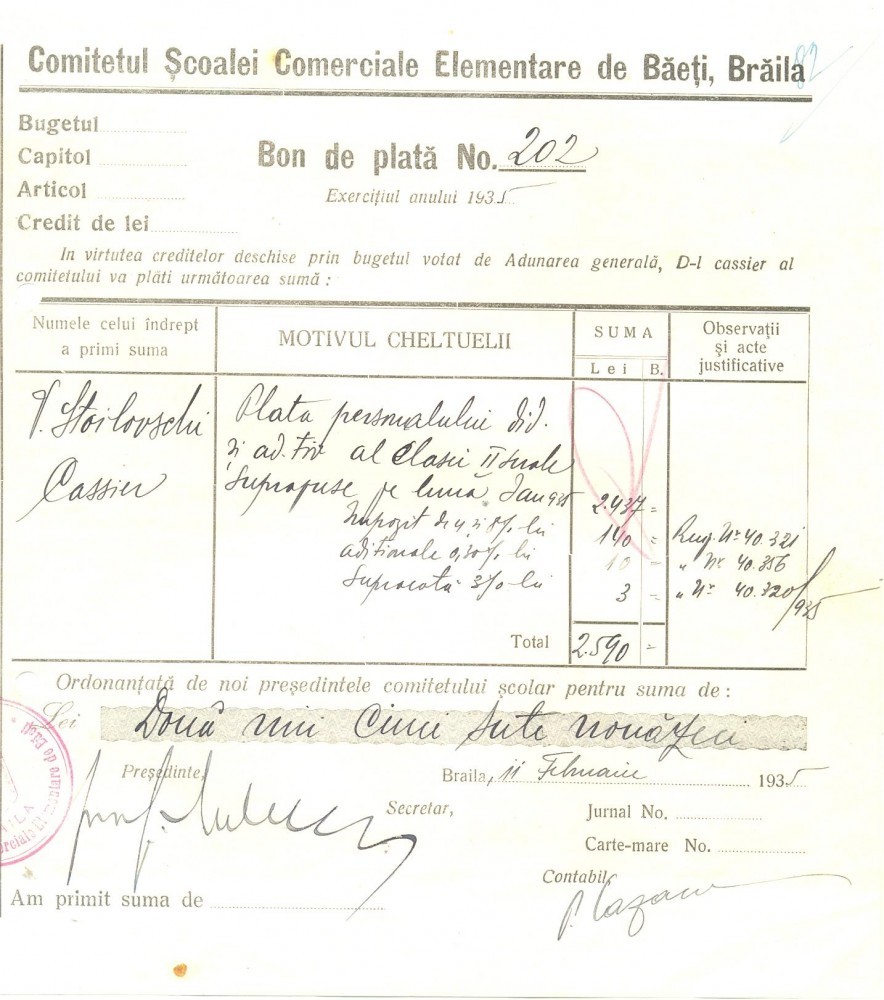 Comitetul Școalei Comerciale Elementare de Băeți, Brăila
82
Bugetul
Capitol
Articol
Credit de lei
Bon de plată No. 202
Exercițiul anului 1935
In virtutea creditelor deschise prin bugetul votat de Adunarea generală, D-l cassier al
comitetului va plăti următoarea sumă :
Numele celui îndrept a primi suma
MOTIVUL CHELTUELII
SUMA
Lei B.
Observații și acte justificative
Stoilovschi
Cassier
Plata personalului did.
și ad.tiv al Clasei II
Suprapuse pe lună Jan 935 2.437 =
Impozit de 4 și 8% lei 140 = Nr 40.321
aditionale 0,30% lei 10 = " Nr 40.356
Supracotă 3% lei 3 = " Nr 40.320/935
Total 2.590 =
Ordonanțată de noi președintele comitetului școlar pentru suma de :
Lei Două mii Cinci sute nouăzeci
Președinte,
Braila, 11 Februarie 1935
Secretar,
Jurnal No.
Carte-mare No.
Contabil,
Am primit suma de